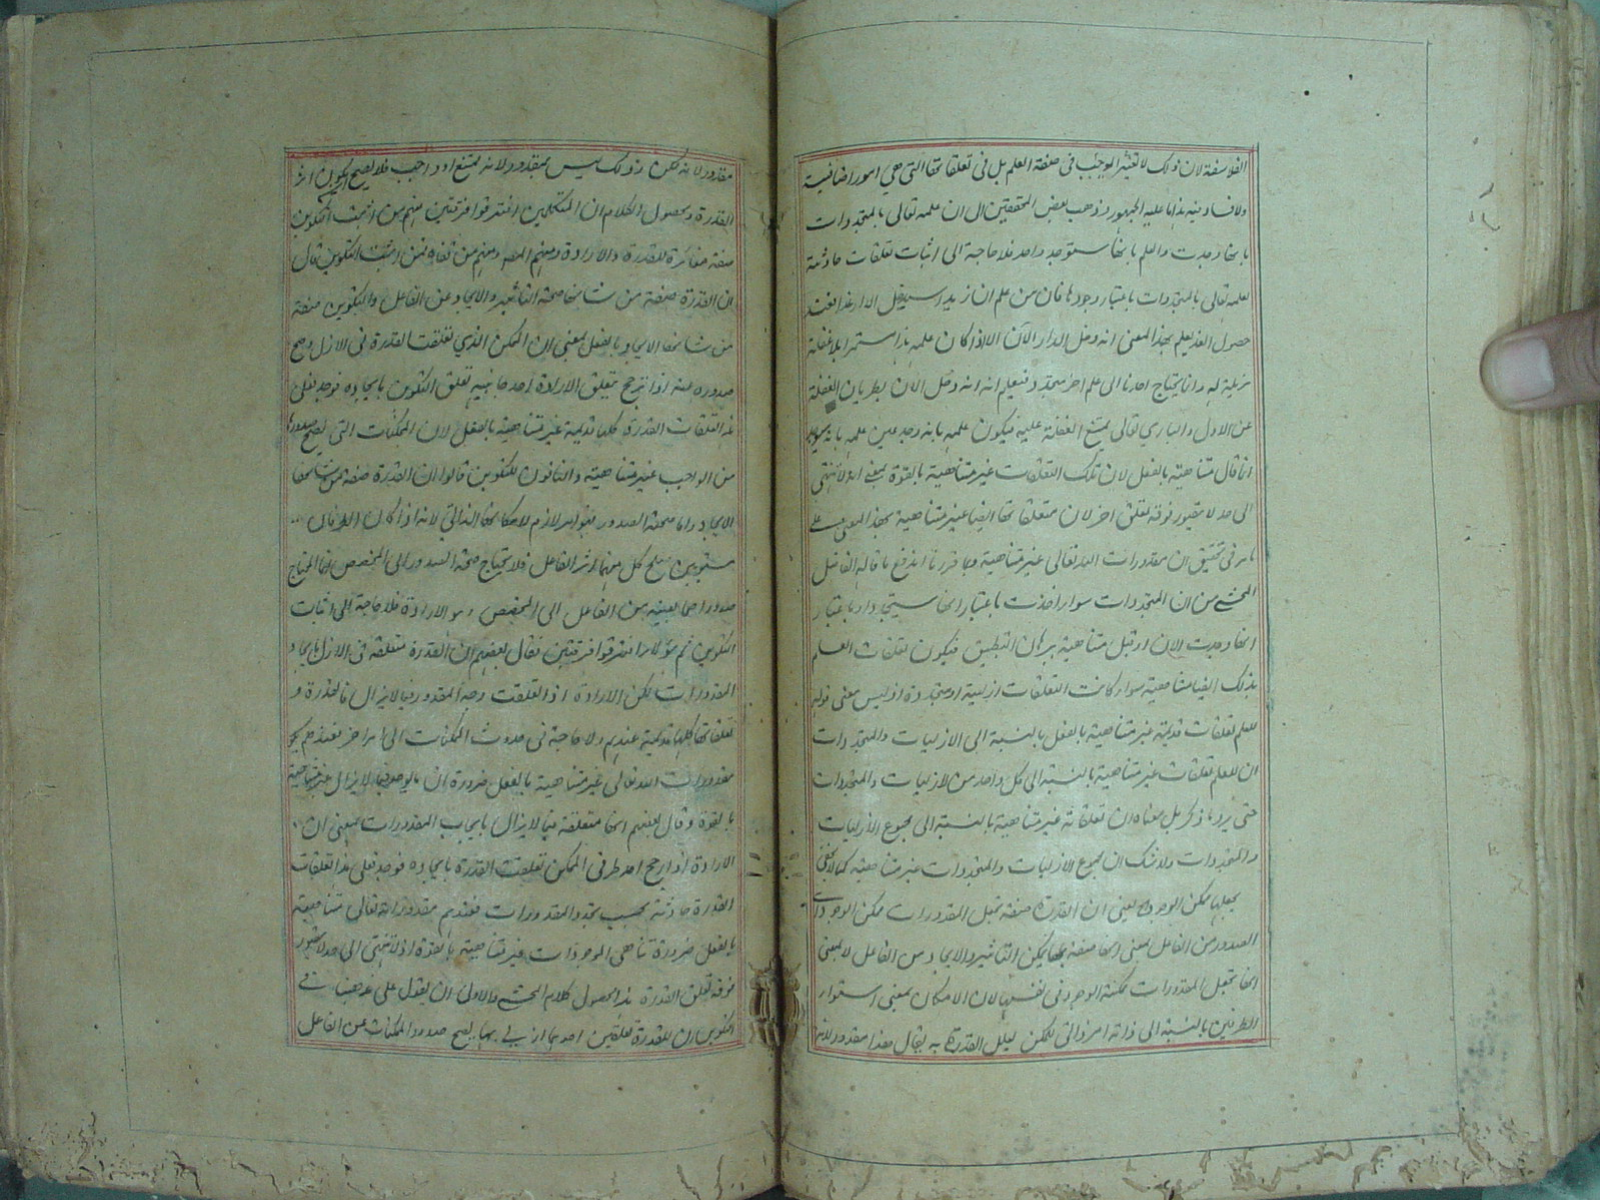 الفلاسفة لان ذلك لا تغير الموجب في صفة العلم بل في تعلقاتها التي هي امور اضافية
ولا فساد فيه هذا ما عليه الجمهور وذهب بعض المحققين الى ان علمه تعالى بالمتجددات
بانها وجدت والعلم بانها ستوجد واحد فلا حاجة الى اثبات تعلقات حادثة
لعلمه تعالى بالمتجددات باعتبار وجودها فان من علم ان زيدا سيدخل الدار غدا فعند
حصول الغد يعلم بهذا المعنى انه دخل الدار الآن الا اذا كان علمه هذا مستمرا بلا غفلة
مزيلة له وانما يحتاج احدنا الى علم اخر متجدد فيعلم انه دخل الآن بطريان الغفلة
عن الاول والباري تعالى يمتنع الغفلة عليه فيكون علمه بانه وجد عين علمه بانه سيوجد
انما قال متناهية بالفعل لان تلك التعلقات غير متناهية بالقوة بمعنى انها لا تنتهي
الى حد لا يتصور فوقه تعلق اخر لان متعلقاتها ايضا غير متناهية بهذا المعنى على
ما مر في تحقيق ان مقدورات الله تعالى غير متناهية وبما قررنا اندفع ما قاله الفاضل
المحشي من ان المتجددات سواء اخذت باعتبار انها ستتجدد او باعتبار
انها وجدت الان او قبل متناهية ببرهان التطبيق فيكون تعلقات العلم
بذلك ايضا متناهية سواء كانت التعلقات ازلية او متجددة اذ ليس معنى قوله
للعلم تعلقات قديمة غير متناهية بالفعل بالنسبة الى الازليات والمتجددات
ان للعلم تعلقات غير متناهية بالنسبة الى كل واحد من الازليات والمتجددات
حتى يرد ما ذكر بل معناه ان تعلقاته غير متناهية بالنسبة الى مجموع الازليات
والمتجددات ولا شك ان مجموع الازليات والمتجددات غير متناهية كما لا يخفى
يجعلها ممكن الوجود بمعنى ان القدرة صفة تجعل المقدورات ممكن الوجود اي
الصدور من الفاعل بمعنى انها صفة بها يمكن التاثير والايجاد من الفاعل لا بمعنى
انها تجعل المقدورات ممكنة الوجود في نفسها لان الامكان بمعنى استواء
الطرفين بالنسبة الى ذاته امر ذاتي للممكن يعلل القدرة به يقال هذا مقدور لانه
مقدور لانه ممكن وذلك ليس بمقدور لانه ممتنع او واجب فلا يصح ان يكون اثر
القدرة ومحصول الكلام ان المتكلمين افترقوا فرقتين منهم من اثبت التكوين
صفة مغائرة للقدرة والارادة ومنهم المص ومنهم من نفاه فمن اثبت التكوين قال
ان القدرة صفة من شانها صحة التاثير والايجاد عن الفاعل والتكوين صفة
من شانها الايجاد بالفعل بمعنى ان الممكن الذي تعلقت القدرة في الازل وصح
صدوره منه اذا ترجح بتعلق الارادة احد جانبيه تعلق التكوين بايجاده فوجد فعلى
هذا تعلقات القدرة كلها قديمة غير متناهية بالفعل لان الممكنات التي يصح صدورها
من الواجب غير متناهية والنافون للتكوين قالوا ان القدرة صفة من شانها
الايجاد واما صحة الصدور فهو امر لازم لامكانها الذاتي لانه اذا كان الطرفان
مستويين يصلح كل منهما اثر الفاعل فلا يحتاج صحة الصدور الى المخصص انما المحتاج
صدور احدهما بعينه من الفاعل الى المخصص وهو الارادة فلا حاجة الى اثبات
التكوين ثم هؤلاء افترقوا فرقتين فقال بعضهم ان القدرة متعلقة في الازل بايجاد
المقدورات لكن الارادة اذا تعلقت وجد المقدور فيما لا يزال فالقدرة و
تعلقاتها كلها قديمة عندهم ولا حاجة في حدوث الممكنات الى امر اخر فعندهم
مقدورات الله تعالى غير متناهية بالفعل ضرورة ان ما يوجد فيما لا يزال غير متناهية
بالقوة وقال بعضهم انها متعلقة فيما لا يزال بايجاب المقدورات بمعنى ان
الارادة اذا رجح احد طرفي الممكن تعلقت القدرة بايجاده فوجد فعلى هذا تعلقات
القدرة حادثة بحسب تجدد المقدورات فعندهم مقدورات الله تعالى متناهية
بالفعل ضرورة تناهي الموجودات غير متناهية بالقوة اذ لا تنتهي الى حد لا يتصور
فوقه تعلق القدرة هذا محصول كلام المحشي والاولى ان يقول على مذهب
التكوين ان للقدرة تعلقين احدهما ازلي بها يصح صدور الممكنات عن الفاعل